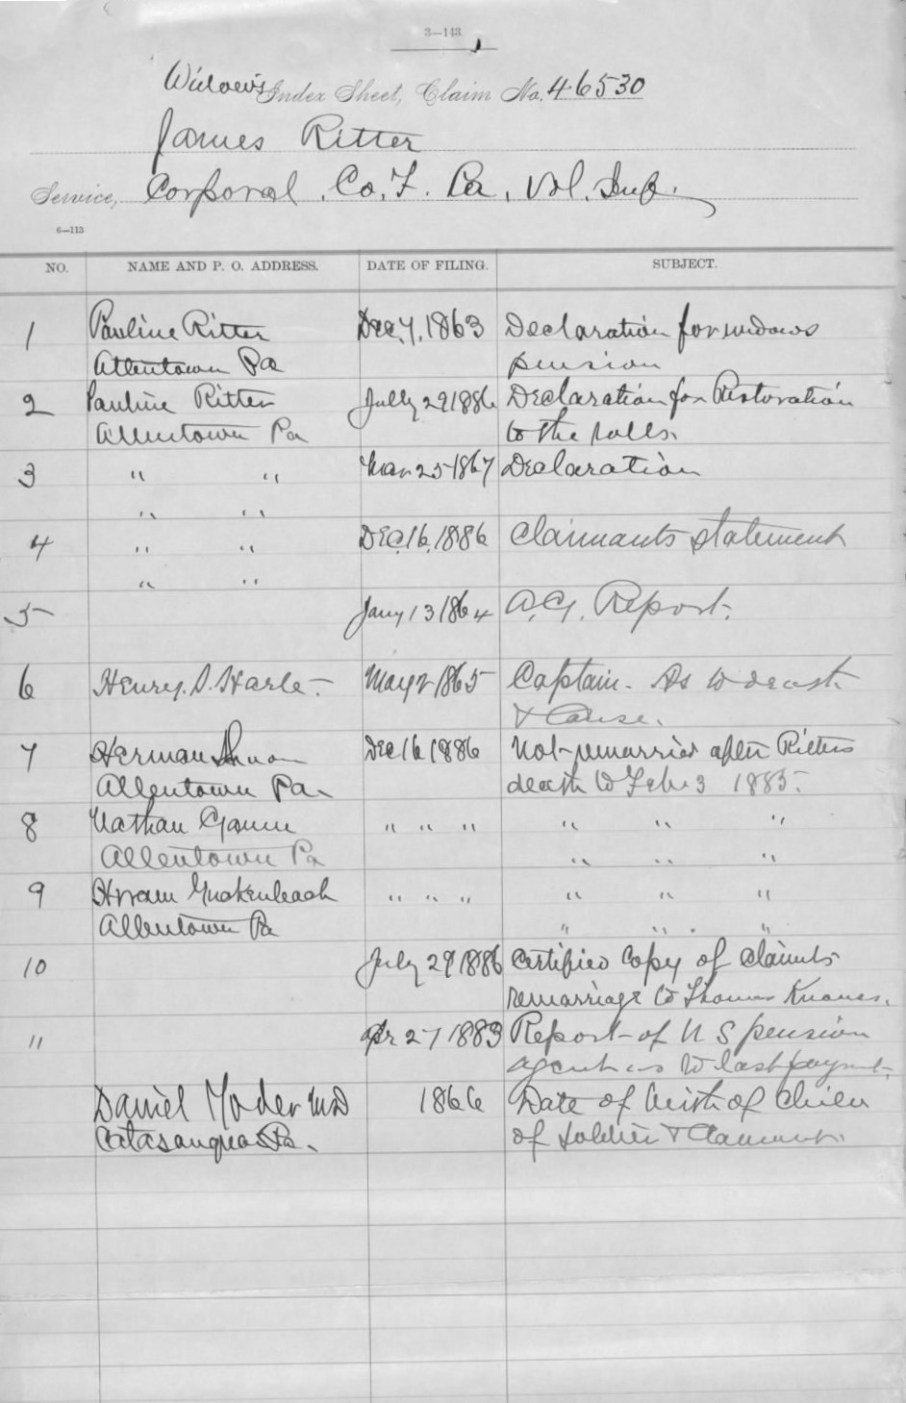 3—143
Widow's Index Sheet, Claim No. 46530
James Ritter
Service, Corporal. Co. F. Pa. Vol. Inf.
6—113
NO. NAME AND P. O. ADDRESS. DATE OF FILING. SUBJECT.
1 Pauline Ritter Dec, 7, 1863 Declaration for widows
Allentown Pa pension
2 Pauline Ritter July 29 1886 Declaration for Restoration
Allentown Pa to the rolls.
3 " " Mar 25 1867 Declaration
" "
4 " " Dec. 16, 1886 Claimants statement
" "
5 Jany 13 1864 A. G. Report.
6 Henry. S. Harte - May 2 1865 Captain - As to death
& Cause.
7 Herman Dec 16 1886 Not remarried after Ritters
Allentown Pa. death to Feb. 3 1885.
8 Nathan " " " " " "
Allentown Pa " " "
9 Hiram " " " " " "
Allentown Pa " " "
10 July 29 1886 Certified Copy of Claimts
remarriage to Thomas
11 Apr 27 1883 Report of U S pension
agent as to last paymt.
Daniel Yoder M.D 1866 Date of birth of Child
Catasauqua Pa. of soldier & Claimant.